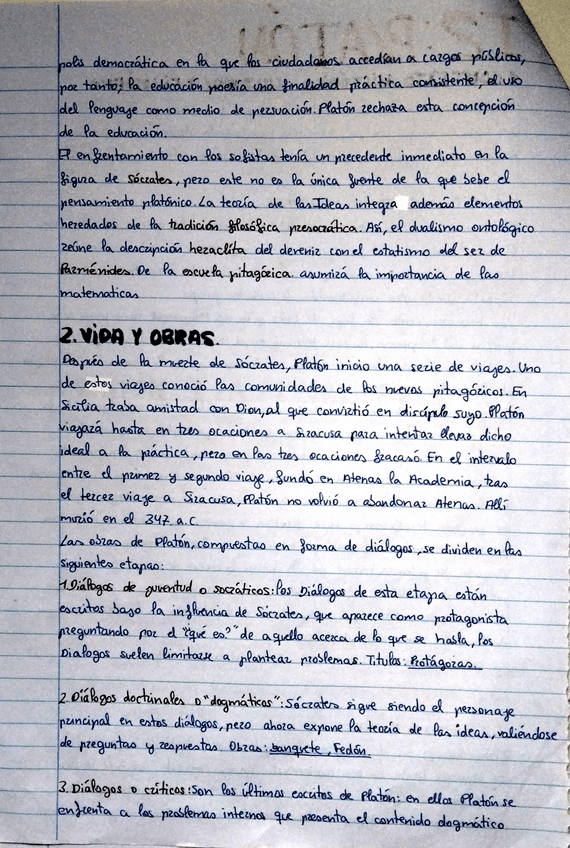 polis democrática en la que los ciudadanos accedían a cargos públicos,
por tanto, la educación poesía una finalidad práctica consistente, el uso
del lenguaje como medio de persuación. Platón rechaza esta concepción
de la educación.
El enfrentamiento con los sofistas tenía un precedente inmediato en la
figura de Sócrates, pero este no es la única fuente de la que bebe el
pensamiento platónico. La teoría de las Ideas integra además elementos
heredados de la tradición filosófica presocrática. Así, el dualismo ontológico
reúne la descripción heraclita del devenir con el estatismo del ser de
Parménides. De la escuela pitagórica asumirá la importancia de las
matematicas
2. VIDA Y OBRAS.
Después de la muerte de Sócrates, Platón inicio una serie de viajes. Uno
de estos viajes conoció las comunidades de los nuevos pitagóricos. En
Sicilia traba amistad con Dion, al que convirtió en discípulo suyo. Platón
viajará hasta en tres ocaciones a Siracusa para intentar llevar dicho
ideal a la práctica, pero en las tres ocaciones fracasó. En el intervalo
entre el primer y segundo viaje, fundó en Atenas la Academia, tras
el tercer viaje a Siracusa, Platón no volvió a abandonar Atenas. Allí
murió en el 347. a.C.
Las obras de Platón, compuestas en forma de diálogos, se dividen en las
siguientes etapas:
1. Diálogos de juventud o socráticos: los Diálogos de esta etapa están
escritos bajo la influencia de Sócrates, que aparece como protagonista
preguntando por el "qué es?" de aquello acerca de lo que se habla, los
Dialogos suelen limitarse a plantear problemas. Titulos: Protágoras.
2. Diálogos doctrinales o "dogmáticos": Sócrates sigue siendo el personaje
principal en estos diálogos, pero ahora expone la teoría de las ideas, valiéndose
de preguntas y respuestas. Obras: banquete, Fedón.
3. Diálogos o críticos: Son los últimos escritos de Platón: en ellos Platón se
enfrenta a los problemas internos que presenta el contenido dogmático